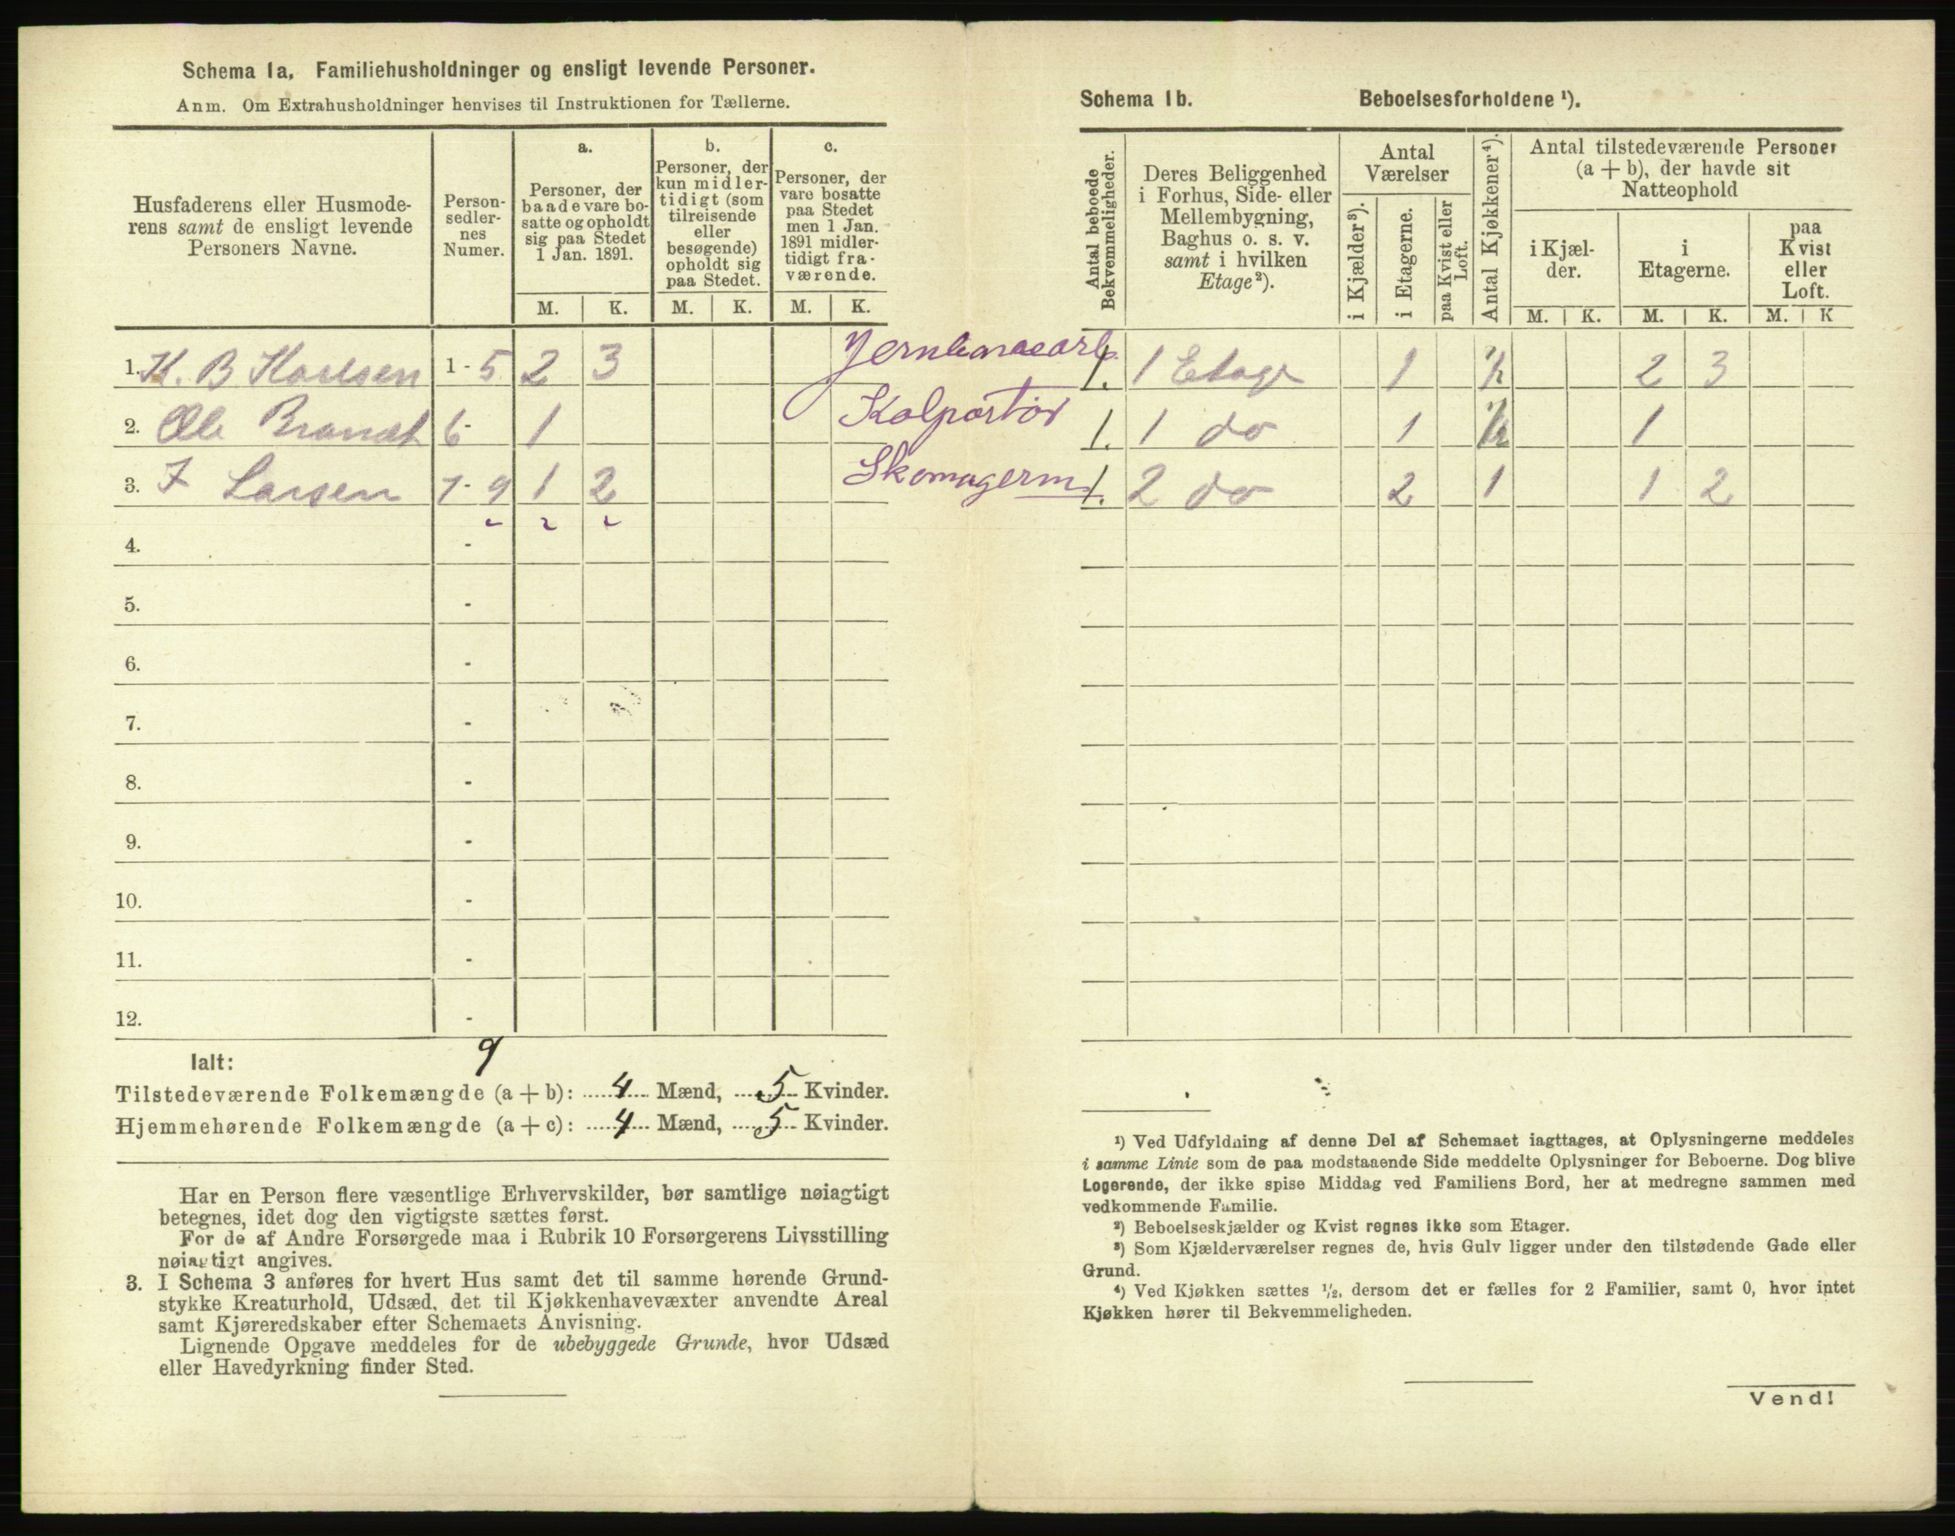 Schema 1a. Familiehusholdninger og ensligt levende Personer.
Anm. Om Extrahusholdninger henvises til Instruktionen for Tællerne.
Husfaderens eller Husmode-
rens samt de ensligt levende
Personers Navne.
Person-
sedler-
nes
Numer.
a.
Personer, der
baade vare bo-
satte og opholdt
sig paa Stedet
1 Jan. 1891.
b.
Personer, der
kun midler-
tidigt (som
tilreisende
eller
besøgende)
opholdt sig
paa Stedet.
c.
Personer, der
vare bosatte
paa Stedet
men 1 Jan.
1891 midler-
tidigt fra-
værende.
M. K. M. K. M. K.
1. K. B Karlsen 1 - 5 2 3
2. Ole Brandt 6 - 1 Kolportør
3. J Larsen 7 - 9 1 2 Skomagerm
4. -
5. -
6. -
7. -
8. -
9. -
10. -
11. -
12. -
Ialt: 9
Tilstedeværende Folkemængde (a + b): 4 Mænd, 5 Kvinder.
Hjemmehørende Folkemængde (a + c): 4 Mænd, 5 Kvinder.
Har en Person flere væsentlige Erhvervskilder, bør samtlige nøiagtigt
betegnes, idet dog den vigtigste sættes først.
For de af Andre Forsørgede maa i Rubrik 10 Forsørgerens Livsstilling
nøiagtigt angives.
3. I Schema 3 anføres for hvert Hus samt det til samme hørende Grund-
stykke Kreaturhold, Udsæd, det til Kjøkkenhavevæxter anvendte Areal
samt Kjøreredskaber efter Schemaets Anvisning.
Lignende Opgave meddeles for de ubebyggede Grunde, hvor Udsæd
eller Havedyrkning finder Sted.
Schema 1b. Beboelsesforholdene ¹).
Antal beboede
Bekvemmeligheder.
Deres Beliggenhed
i Forhus, Side- eller
Mellembygning,
Baghus o. s. v.
samt i hvilken
Etage²).
Antal
Værelser
i Kjælder³).
i Etagerne.
paa Kvist eller
Loft.
Antal Kjøkkener⁴).
Antal tilstedeværende Personer
(a + b), der havde sit
Natteophold
i Kjæl-
der.
i
Etagerne.
paa
Kvist
eller
Loft.
M. K. M. K. M. K
1. 1 Etage 1 ½ 2 3
1. 1 do 1 ½ 1
1. 2 do 2 1 1 2
¹) Ved Udfyldning af denne Del af Schemaet iagttages, at Oplysningerne meddeles
i samme Linie som de paa modstaaende Side meddelte Oplysninger for Beboerne. Dog blive
Logerende, der ikke spise Middag ved Familiens Bord, her at medregne sammen med
vedkommende Familie.
²) Beboelseskjælder og Kvist regnes ikke som Etager.
³) Som Kjælderværelser regnes de, hvis Gulv ligger under den tilstødende Gade eller
Grund.
⁴) Ved Kjøkken sættes ½, dersom det er fælles for 2 Familier, samt 0, hvor intet
Kjøkken hører til Bekvemmeligheden.
Vend!